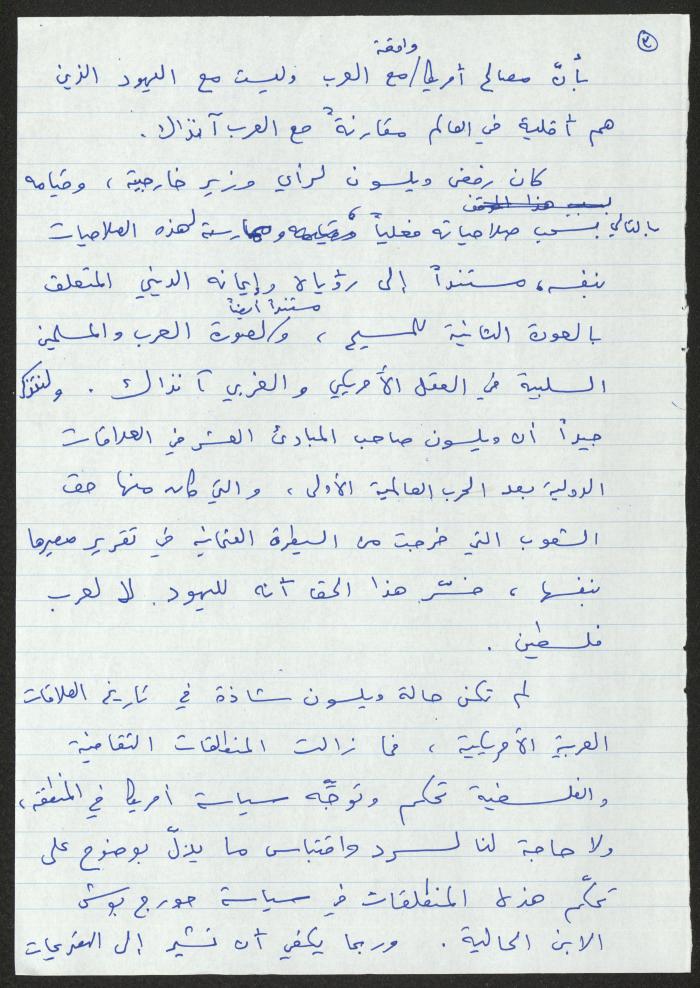 ٣
واقعة
بأنّ مصالح أمريكا / مع العرب وليست مع اليهود الذين
هم أقلية في العالم مقارنةً مع العرب آنذاك.
كان رفض ويلسون لرأي وزير خارجيته، وقيامه
بسبب هذا الموقف
بالتالي بسحب صلاحياته فعلياً وممارسة لهذه الصلاحيات
بنفسه، مستنداً إلى رؤياه وإيمانه الديني المتعلق
مستنداً أيضاً
بالعودة الثانية للمسيح، ولصورة العرب والمسلمين
السلبية في العقل الأمريكي والغربي آنذاك. ولنتذكر
جيداً أن ويلسون صاحب المبادئ العشر في العلاقات
الدولية بعد الحرب العالمية الأولى، والتي كان منها حق
الشعوب التي خرجت من السيطرة العثمانية في تقرير مصيرها
بنفسها، فسّر هذا الحق أنه لليهود لا لعرب
فلسطين.
لم تكن حالة ويلسون شاذة في تاريخ العلاقات
العربية الأمريكية، فما زالت المنطلقات الثقافية
والفلسفية تحكم وتوجّه سياسة أمريكا في المنطقة،
ولا حاجة لنا لسرد واقتباس ما يدلّ بوضوح على
تحكّم هذه المنطلقات في سياسة جورج بوش
الابن الحالية. وربما يكفي أن نشير إلى التصريحات